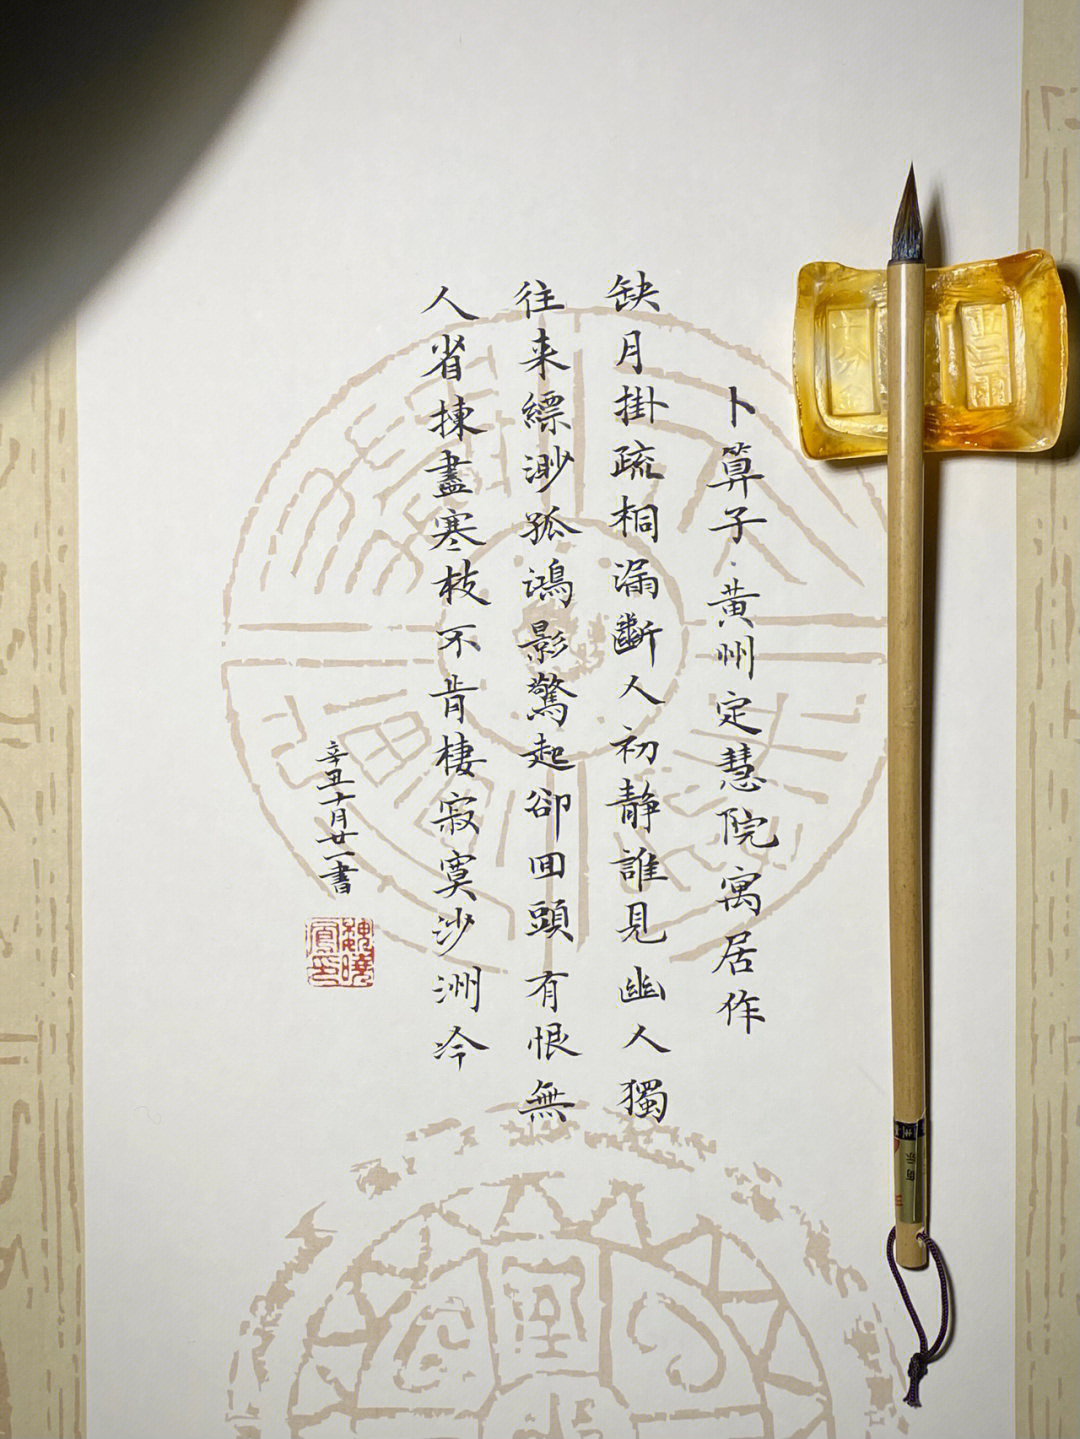 卜算子·黄州定慧院寓居作
缺月掛疏桐漏斷人初静誰見幽人獨
往来縹渺孤鴻影驚起卻回頭有恨無
人省揀盡寒枝不肯棲寂寞沙洲冷
辛丑十月廿一書
魏曉鳳印